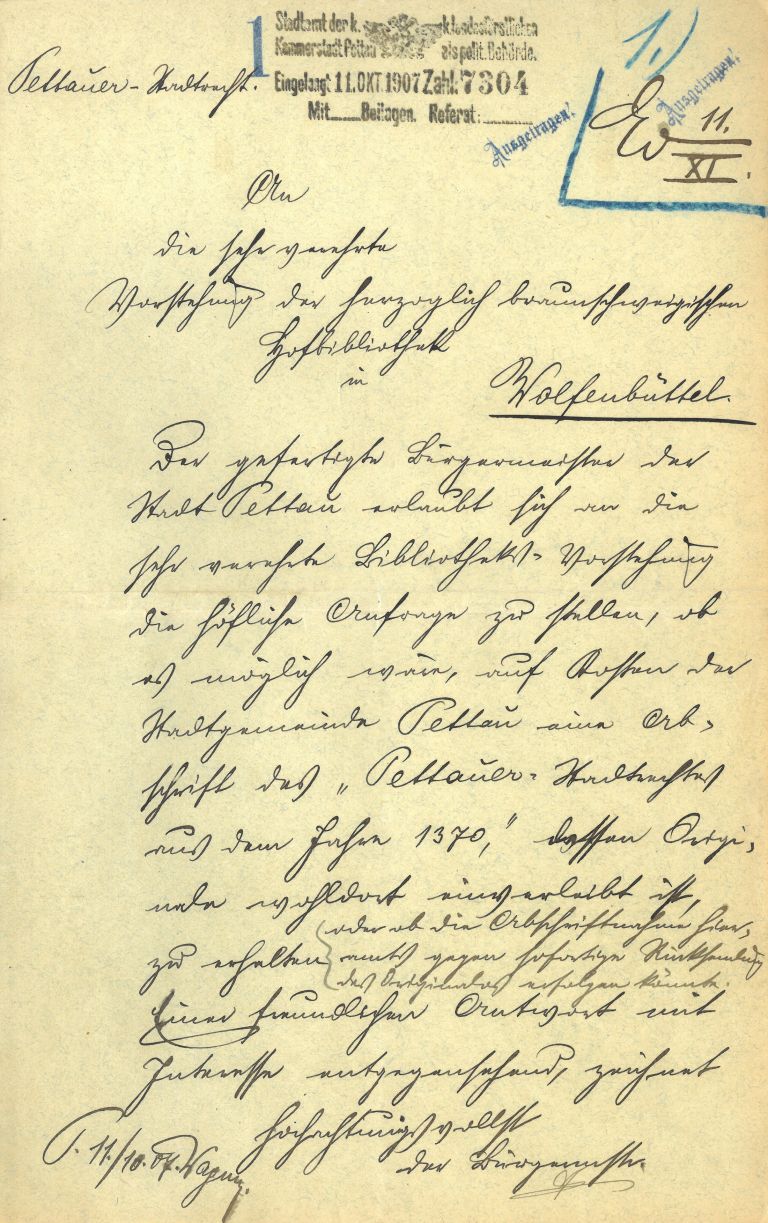 1
Stadtamt der k. k. landesfürstlichen
Kammerstadt Pettau als polit. Behörde.
Eingelangt 11. OKT. 1907 Zahl: 7304
Mit Beilagen. Referat:
Pettauer-Stadtrecht.
1.)
Ausgetragen!
Ausgetragen!
11.
XI.
An
die sehr verehrte
Vorstehung der herzoglich braunschweigischen
Hofbibliothek
in
Wolfenbüttel.
Der gefertigte Bürgermeister der
Stadt Pettau erlaubt sich an die
sehr verehrte Bibliotheks-Vorstehung
die höfliche Anfrage zu stellen, ob
es möglich wäre, auf Kosten der
Stadtgemeinde Pettau eine Ab-
schrift des „Pettauer-Stadtrechtes
aus dem Jahre 1370,“ dessen Origi-
nale wohldort einverleibt ist,
zu erhalten oder ob die Abschriftnahme hier-
amts gegen sofortige Rücksendung
des Originales erfolgen könnte.
Einer freundlichen Antwort mit
Interesse entgegensehend, zeichnet
hochachtungsvollst
der Bürgermstr.
P. 11/10. 07.